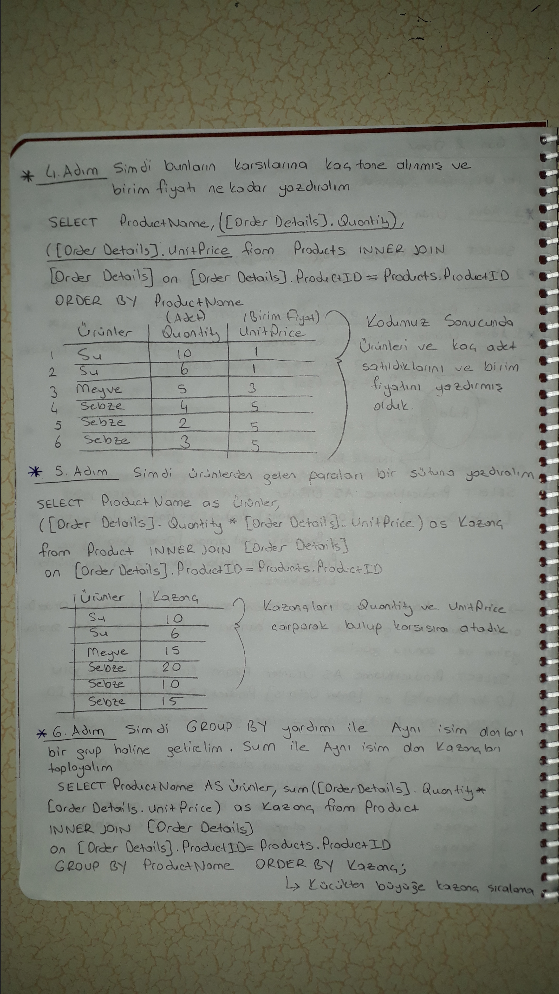 * 4. Adım Simdi bunların karsılarına kaç tane alınmış ve
birim fiyatı ne kadar yazdıralım
SELECT ProductName, ([Order Details].Quantity),
([Order Details].UnitPrice from Products INNER JOIN
[Order Details] on [Order Details].ProductID = Products.ProductID
ORDER BY ProductName
(Adet) (Birim Fiyat)
Ürünler Quantity UnitPrice
1 Su 10 1
2 Su 6 1
3 Meyve 5 3
4 Sebze 4 5
5 Sebze 2 5
6 Sebze 3 5
Kodumuz Sonucunda
Ürünleri ve kaç adet
satıldıklarını ve birim
fiyatını yazdırmış
olduk.
* 5. Adım Simdi ürünlerden gelen paraları bir sütuna yazdıralım
SELECT Product Name as Ürünler,
([Order Details]. Quantity * [Order Details]. UnitPrice) as Kazanç
from Product INNER JOIN [Order Details]
on [Order Details].ProductID = Products.ProductID
Ürünler Kazanç
Su 10
Su 6
Meyve 15
Sebze 20
Sebze 10
Sebze 15
Kazançları Quantity ve UnitPrice
çarparak bulup karsısına atadık
* 6. Adım Simdi GROUP BY yardımı ile Aynı isim olanları
bir grup haline getirelim. Sum ile Aynı isim olan Kazançları
toplayalım
SELECT ProductName AS Ürünler, sum([OrderDetails]. Quantity*
[Order Details.UnitPrice) as Kazanç from Product
INNER JOIN [Order Details]
on [Order Details].ProductID= Products.ProductID
GROUP BY ProductName ORDER BY Kazanç;
↳ Küçükten büyüğe kazanç sıralama